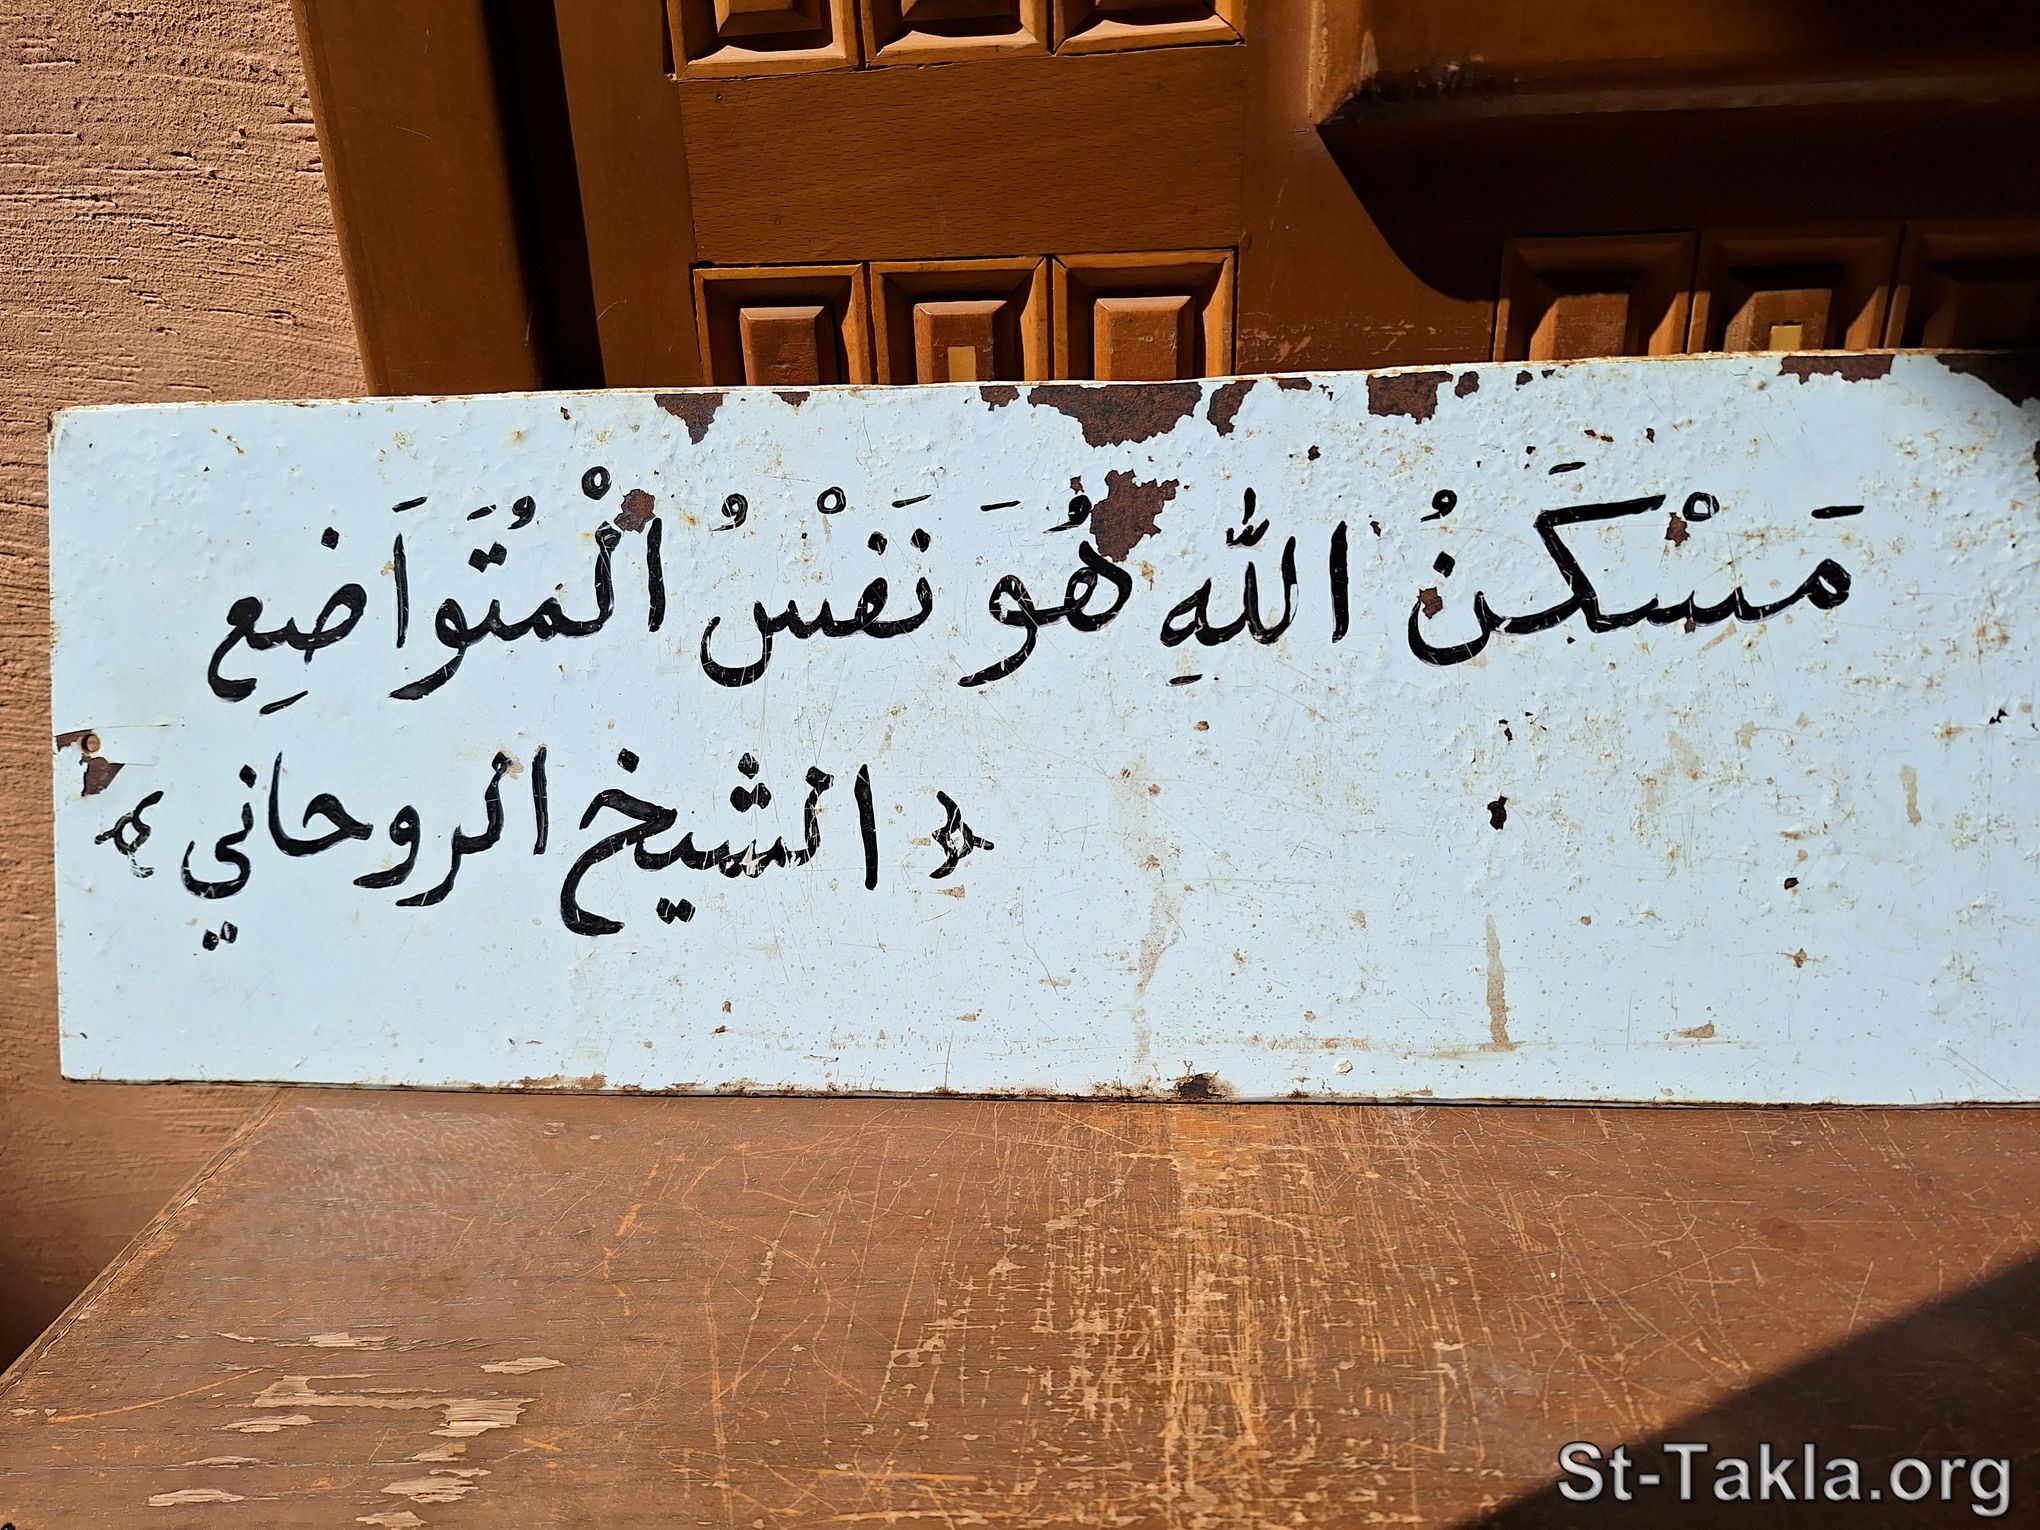 مَسْكَنُ اللّٰهِ هُوَ نَفْسُ الْمُتَوَاضِعِ
﴿ الشيخ الروحاني ﴾
St-Takla.org